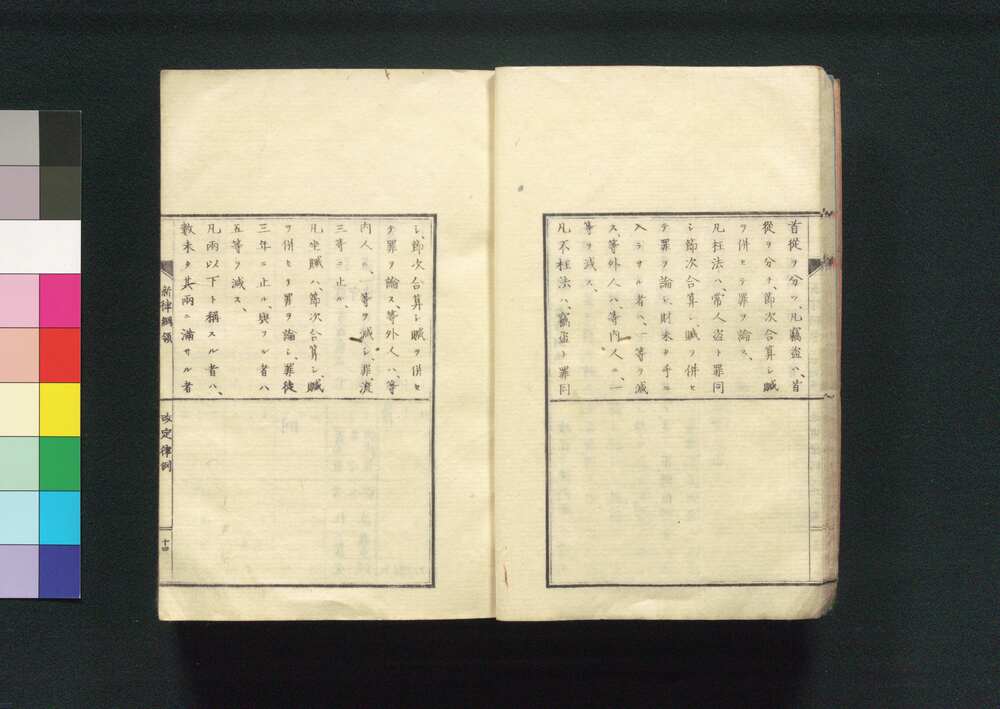 首從ヲ分ツ、凡竊盗ハ、首
從ヲ分チ、節次合算シ贓
ヲ併セテ罪ヲ論ス、
凡枉法ハ、常人盗ト罪同
シ節次合算シ贓ヲ併セ
テ罪ヲ論シ財未タ手ニ
入ラサル者ハ、一等ヲ減
ス、等外人ハ等内人ニ、一
等ヲ減ス、
凡不枉法ハ、竊盗ト罪同
シ、節次合算シ贓ヲ併セ
テ罪ヲ論ス、等外人ハ、等
内人ニ、一等ヲ減シ、罪流
三等ニ止ル、
凡坐贓ハ、節次合算シ、贓
ヲ併セテ罪ヲ論シ、罪徒
三年ニ止ル、與フル者ハ
五等ヲ減ス、
凡兩以下ト稱スル者ハ、
數未タ其兩ニ滿サル者
新律綱領
改定律例
十四